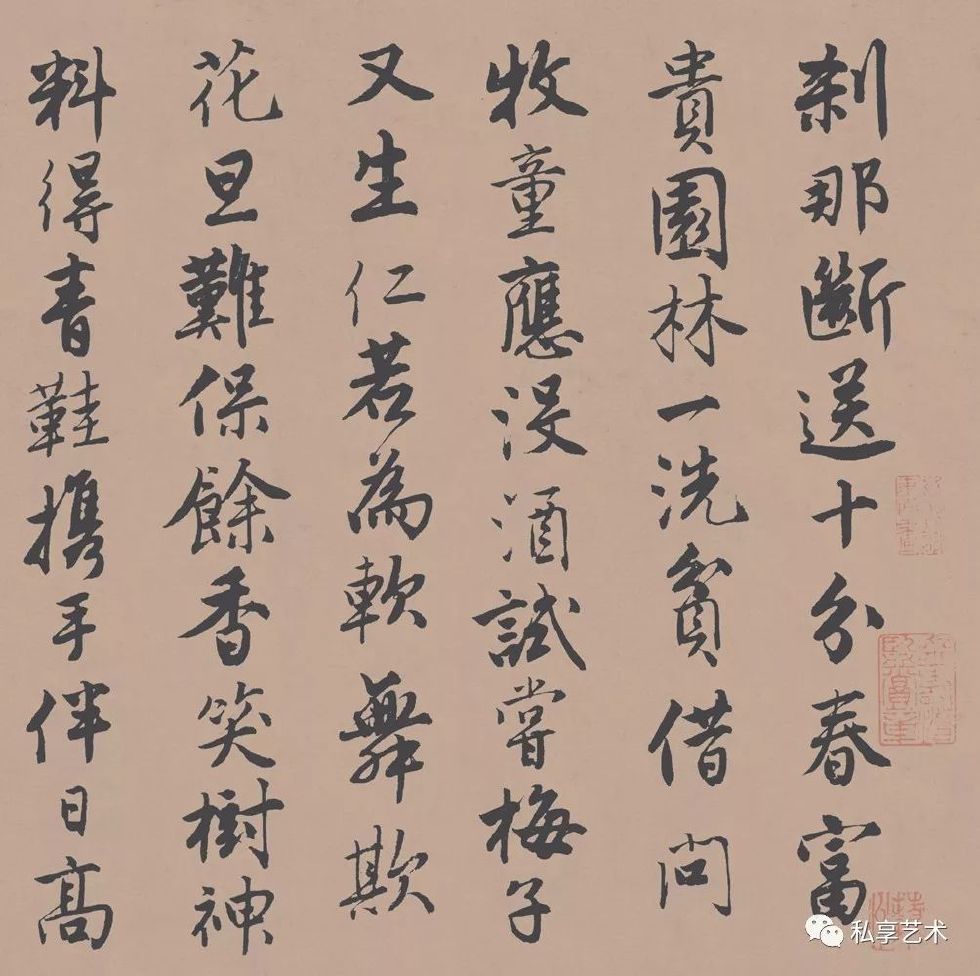 刹那斷送十分春富
貴園林一洗貧借問
牧童應沒酒試嘗梅子
又生仁若為軟舞欺
花旦難保餘香笑樹神
料得青鞋攜手伴日高
私享艺术